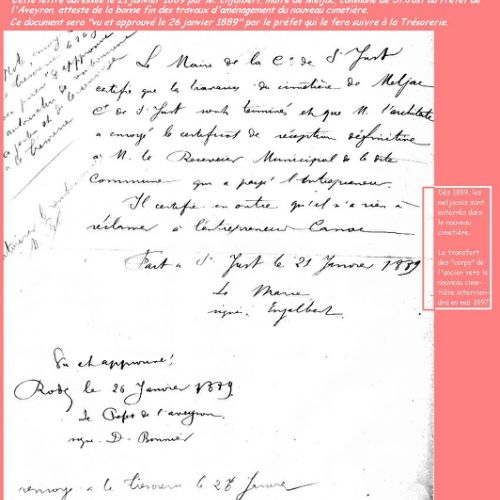 Cette lettre adressée le 21 janvier 1889 par M. Enjalbert, maire de Meljac, commune de St.Just au Préfet de
l'Aveyron, atteste de la bonne fin des travaux d'aménagement du nouveau cimetière.
Ce document sera "vu et approuvé le 26 janvier 1889" par le préfet qui le fera suivre à la Trésorerie.
Le Maire de la Cne de St Just
certifie que la travaux du cimetière de Meljac
Cne de St Just sont terminés et que M. l'architecte
a envoyé le certificat de réception définitive
a M. le Receveur Municipal de la dite
Commune qui a payé l'entrepreneur.
Il certifie en outre qu'il n'a rien à
réclamer à l'entrepreneur
Fait a St Just le 21 Janvier 1889
Le Maire
signé: Enjalbert.
Dès 1889, les
meljacois sont
enterrés dans
le nouveau
cimetière.
Le transfert
des "corps" de
l'ancien vers le
nouveau cime-
tière intervien-
dra en mai 1897
Vu et approuvé!
Rodez le 26 Janvier 1889
Le Préfet de l'aveyron,
signé D. Bonnier
renvoyé a le le 28 Janvier